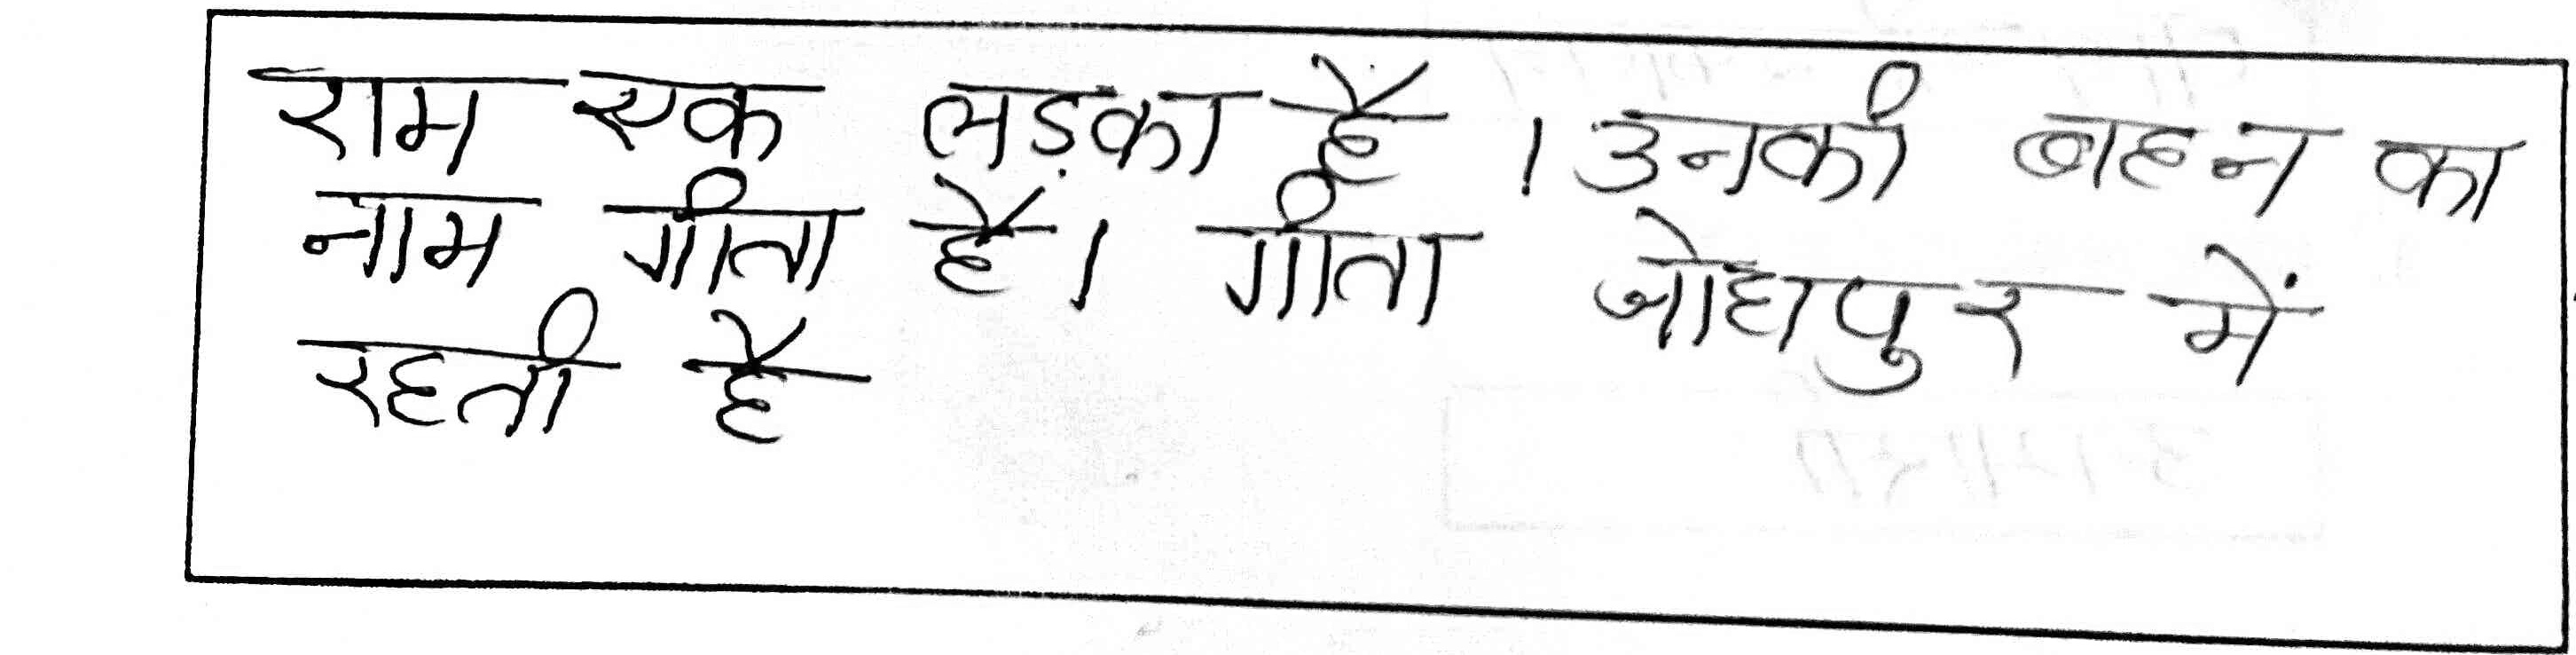 राम एक लड़का है । उनकी बहन का
नाम गीता है । गीता जोधपुर में
रहती है